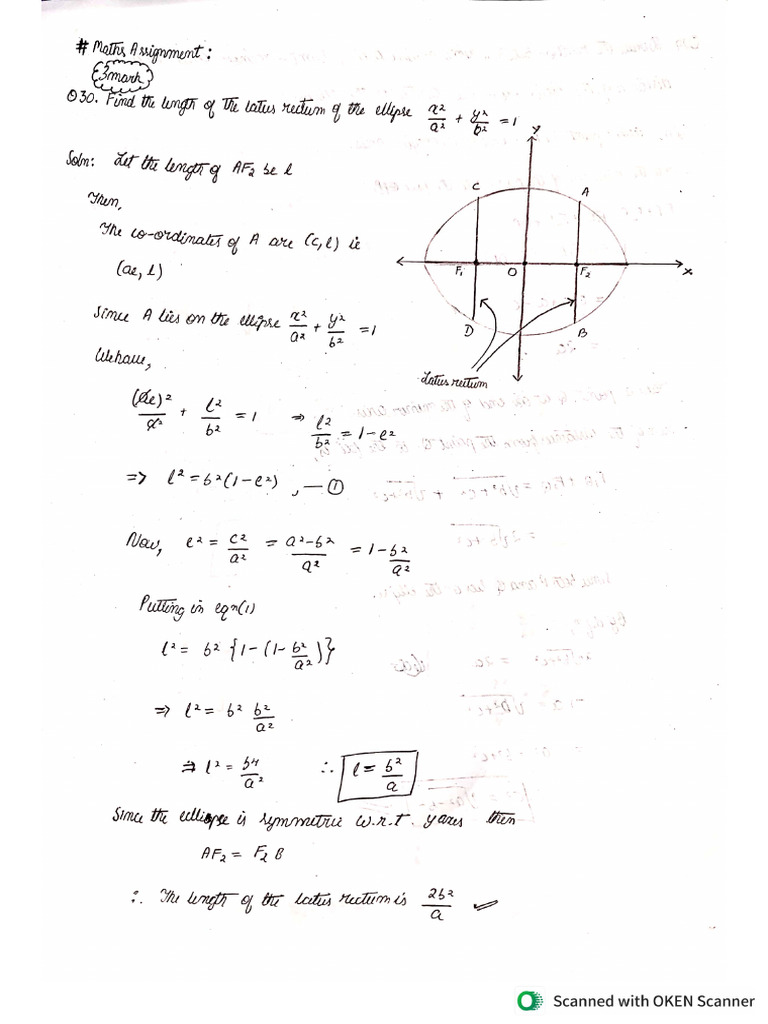 # Maths Assignment:
3mark
Q30. Find the length of the latus rectum of the ellipse x²/a² + y²/b² = 1
Soln: Let the length of AF₂ be l
Then,
The co-ordinates of A are (c, l) ie
(ae, l)
Since A lies on the ellipse x²/a² + y²/b² = 1
We have,
(ae)²/a² + l²/b² = 1 ⇒ l²/b² = 1 - e²
⇒ l² = b²(1 - e²) , — ①
Now, e² = c²/a² = a² - b²/a² = 1 - b²/a²
Putting in eqn(1)
l² = b² {1 - (1 - b²/a²)}
⇒ l² = b² b²/a²
⇒ l² = b⁴/a² ∴ l = b²/a
Since the ellipse is symmetric w.r.t. y axes then
AF₂ = F₂ B
∴ The length of the latus rectum is 2b²/a
y
C A
F₁ O F₂ x
D B
Latus rectum
Scanned with OKEN Scanner